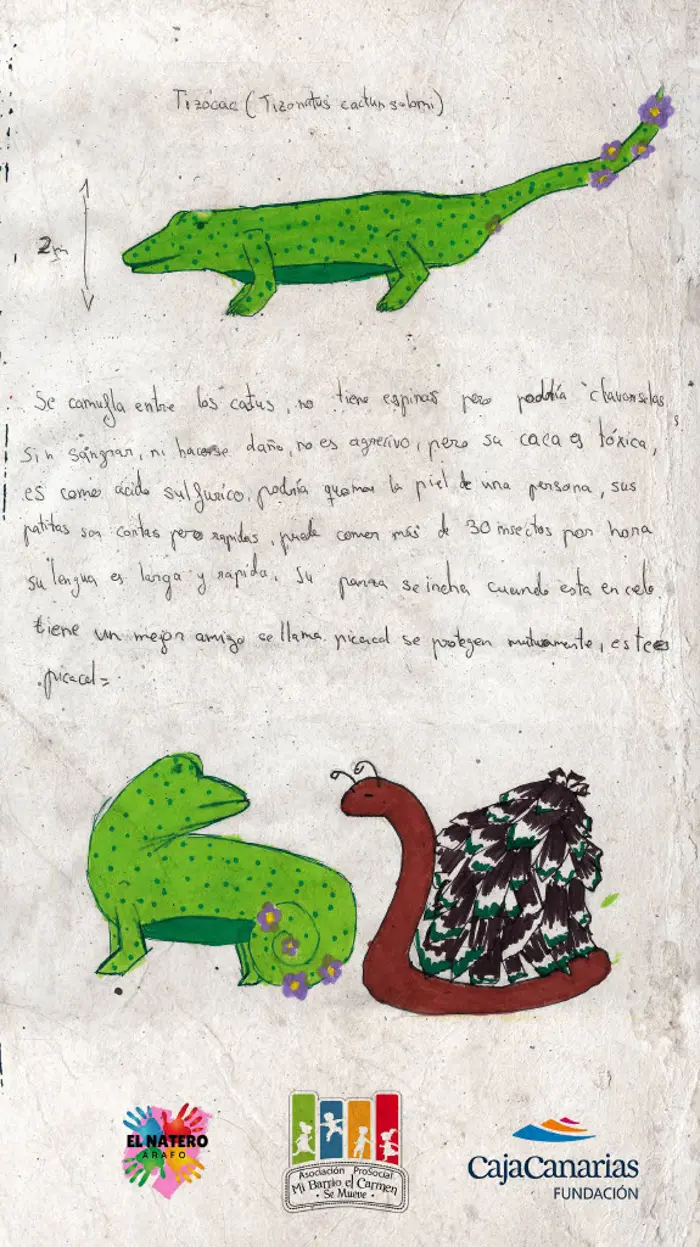 Tizócac (Tizonatus cactun salomi)
2m
Se camufla entre los catus, no tiene espinas pero podría clavarselas
sin sangrar, ni hacerse daño, no es agresivo, pero su caca es tóxica,
es como ácido sulfurico, podría quemar la piel de una persona, sus
patitas son cortas pero rapidas, puede comer más de 30 insectos por hora
su lengua es larga y rapida. Su panza se incha cuando esta en celo.
tiene un mejor amigo se llama picacol se protegen mutuamente, este es
picacol=
EL NATERO
ARAFO
Asociación ProSocial
Mi Barrio el Carmen
· Se Mueve ·
CajaCanarias
FUNDACIÓN